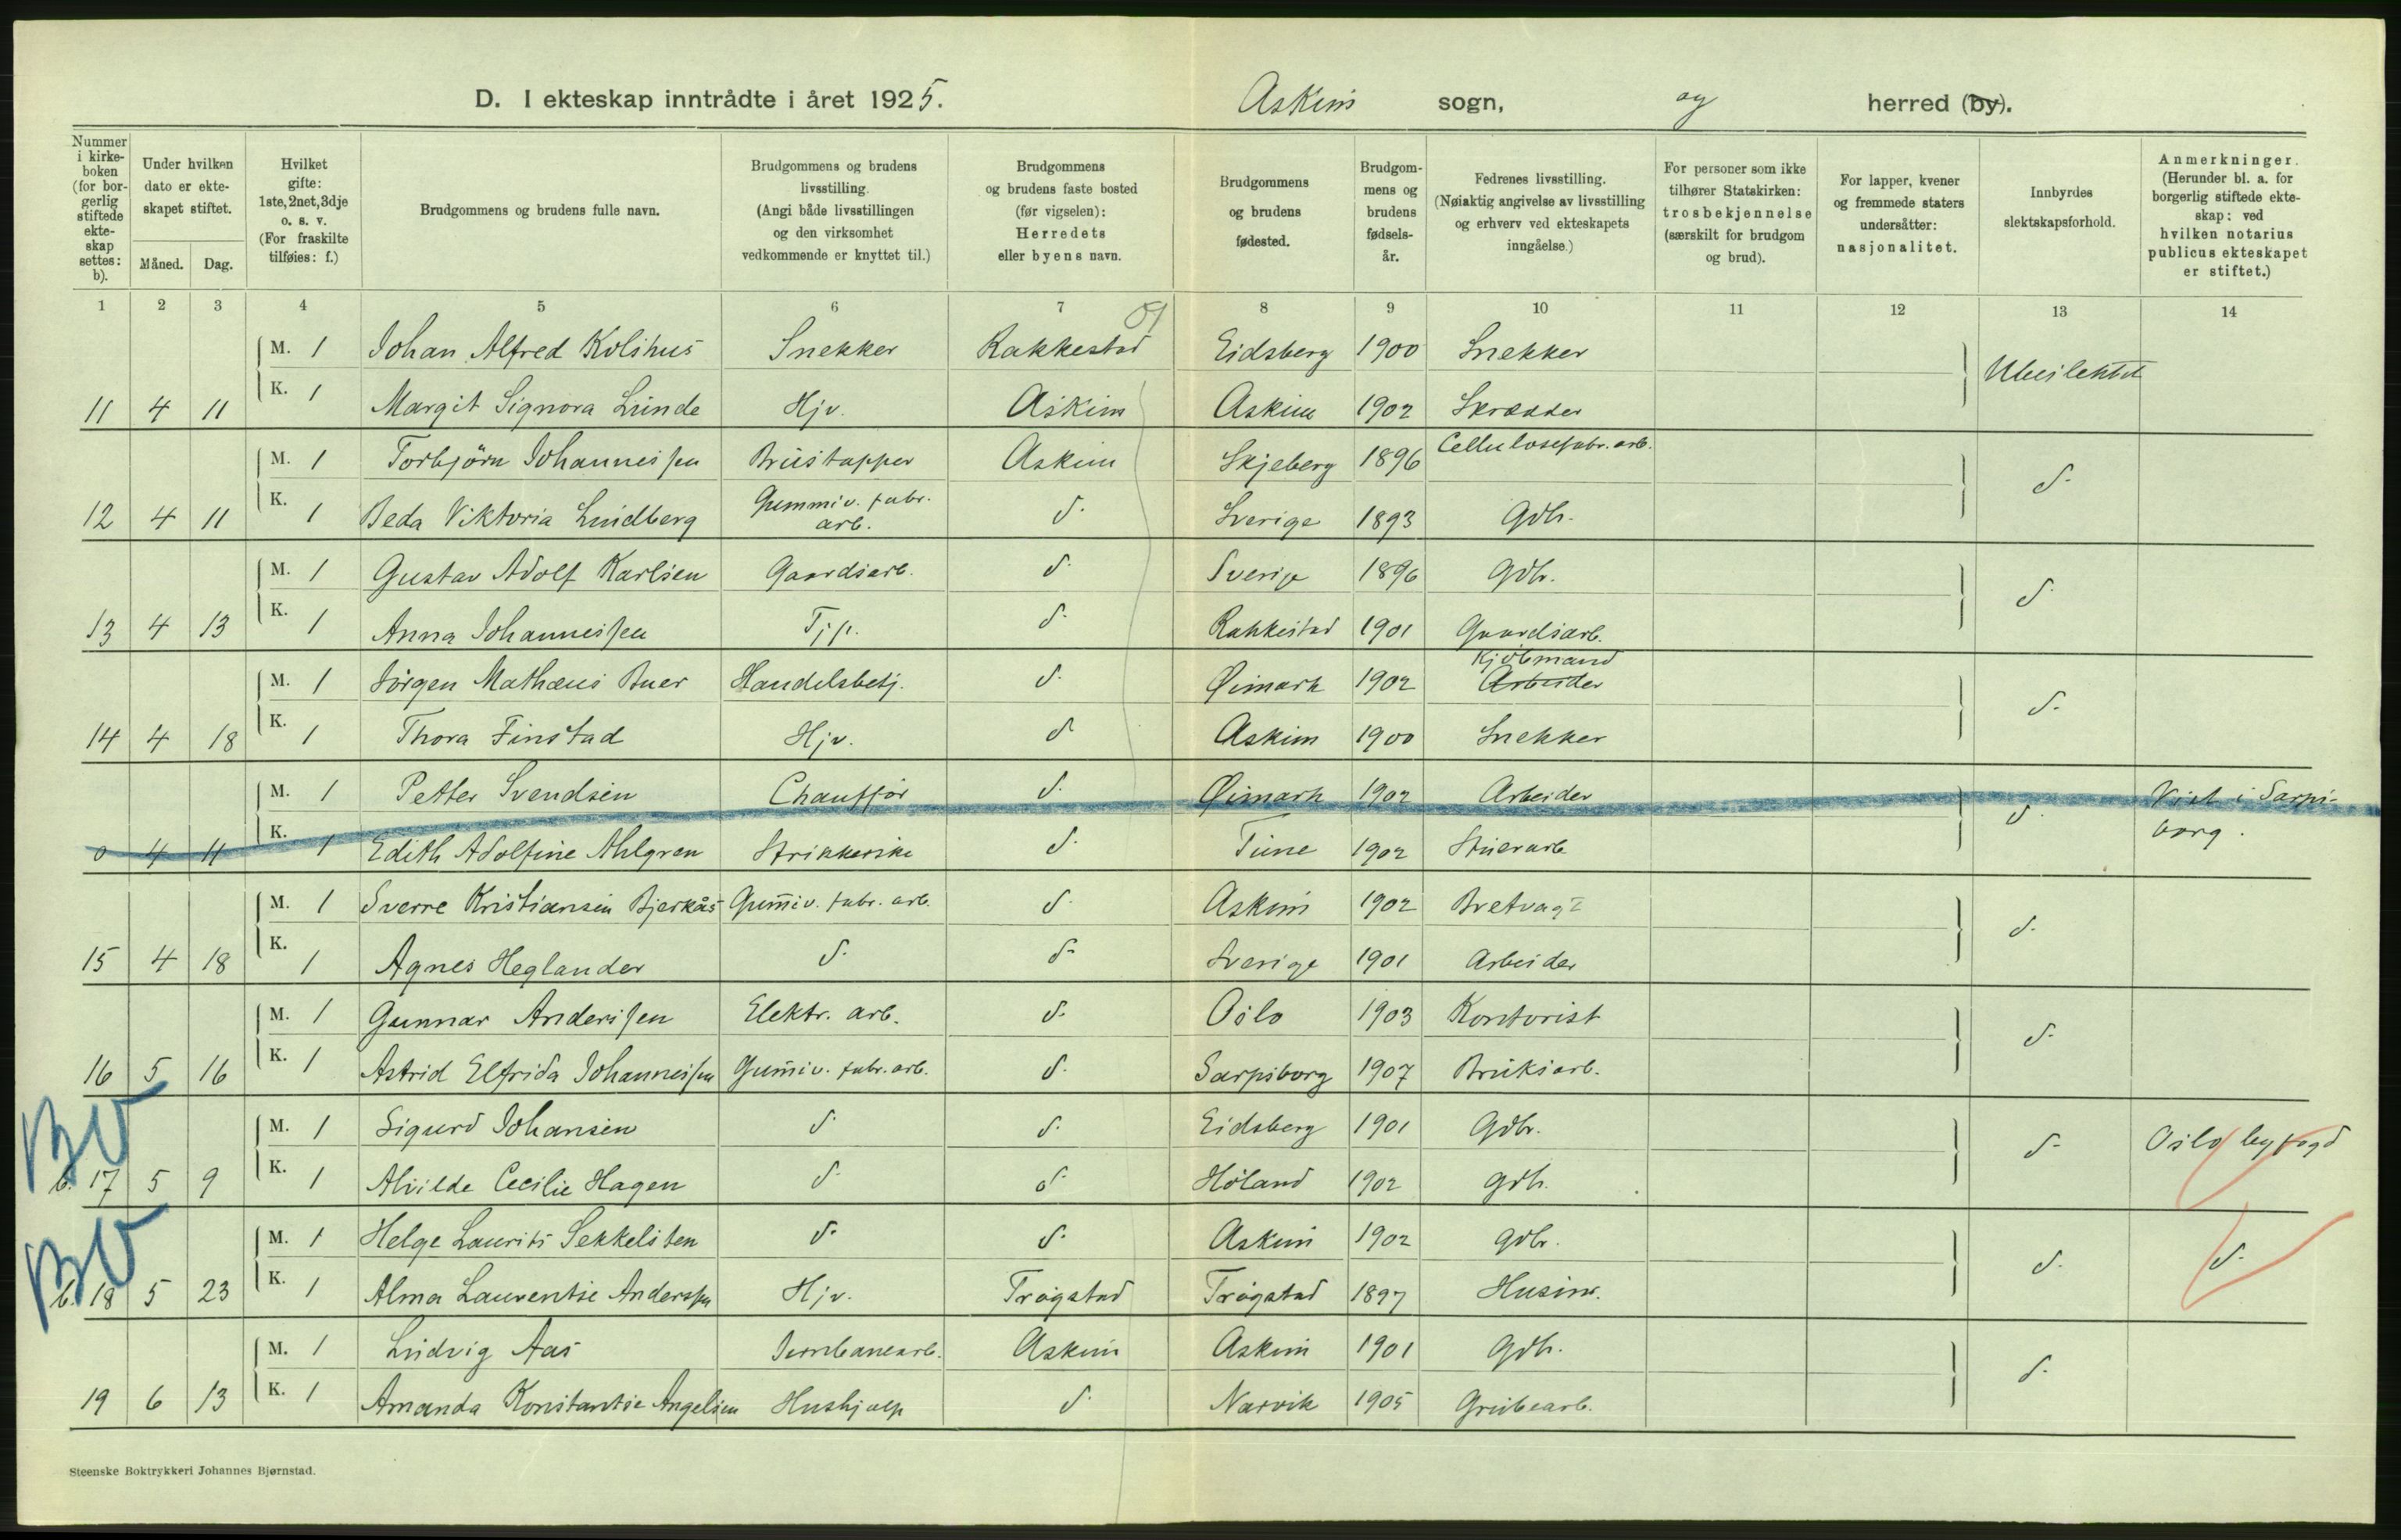 D. I ekteskap inntrådte i året 1925. Askim sogn, og herred (by).
Nummer i kirkeboken (for borgerlig stiftede ekteskap settes: b).
Under hvilken dato er ekteskapet stiftet.
Måned. Dag.
Hvilket gifte: 1ste, 2net, 3dje o. s. v. (For fraskilte tilføies: f.)
Brudgommens og brudens fulle navn.
Brudgommens og brudens livsstilling. (Angi både livsstillingen og den virksomhet vedkommende er knyttet til.)
Brudgommens og brudens faste bosted (før vigselen): Herredets eller byens navn.
Brudgommens og brudens fødested.
Brudgommens og brudens fødselsår.
Fedrenes livsstilling. (Nøiaktig angivelse av livsstilling og erhverv ved ekteskapets inngåelse.)
For personer som ikke tilhører Statskirken: trosbekjennelse (særskilt for brudgom og brud).
For lapper, kvener og fremmede staters undersåtter: nasjonalitet.
Innbyrdes slektskapsforhold.
Anmerkninger. (Herunder bl. a. for borgerlig stiftede ekteskap: ved hvilken notarius publicus ekteskapet er stiftet.)
1 2 3 4 5 6 7 8 9 10 11 12 13 14
M. 1 Johan Alfred Kolshus Snekker Rakkestad Eidsberg 1900 Snekker Ubeslektet
11 4 11 K. 1 Margit Signora Lunde Hjv. Askim Askim 1902 Skrædder
M. 1 Torbjörn Johannessen Brustapper Askim Skjeberg 1896 Cellulosefabr. arb. d.
12 4 11 K. 1 Beda Viktoria Lindberg Gummiv. fabr. arb. d. Sverige 1893 Gdb.
M. 1 Gustav Adolf Karlsen Gaardsarb. d. Sverige 1896 Gdbr. d.
13 4 13 K. 1 Anna Johannessen Tjp. d. Rakkestad 1901 Gaardsarb.
M. 1 Jörgen Mathæus Buer Handelsbetj. d. Øimark 1902 Kjöbmand Arbeider d.
14 4 18 K. 1 Thora Finstad Hjv. d. Askim 1900 Snekker
M. 1 Petter Svendsen Chauffør d. Øimark 1902 Arbeider d. Viet i Sarpsborg.
0 4 11 K. 1 Edith Adolfine Ahlgren Strikkerske d. Tune 1902 Stuerarb
M. 1 Sverre Kristiansen Bjerkås Gummiv. fabr. arb. d. Askim 1902 d.
15 4 18 K. 1 Agnes Heglander d. d. Sverige 1901 Arbeider
M. 1 Gunnar Anderssen Elektr. arb. d. Oslo 1903 Kontorist d.
16 5 16 K. 1 Astrid Elfrida Johannessen Gummiv. fabr. arb. d. Sarpsborg 1907 Bruksarb.
BV M. 1 Sigurd Johansen d. d. Eidsberg 1901 Gdbr. d. Oslo byfogd
b. 17 5 9 K. 1 Alvilde Cecilie Hagen d. d. Höland 1902 gdb.
BV M. 1 Helge Laurits Sekkelsten d. d. Askim 1902 gdbr. d. d.
b. 18 5 23 K. 1 Alma Laurentse Anderssen Hjv. Trögstad Trögstad 1897 Husm.
M. 1 Ludvig Aas Jernbanearb. Askim Askim 1901 Gdb. d.
19 6 13 K. 1 Amanda Konstantse Angelsen Hushjælp d. Narvik 1905 Grubearb.
Steenske Boktrykkeri Johannes Bjørnstad.